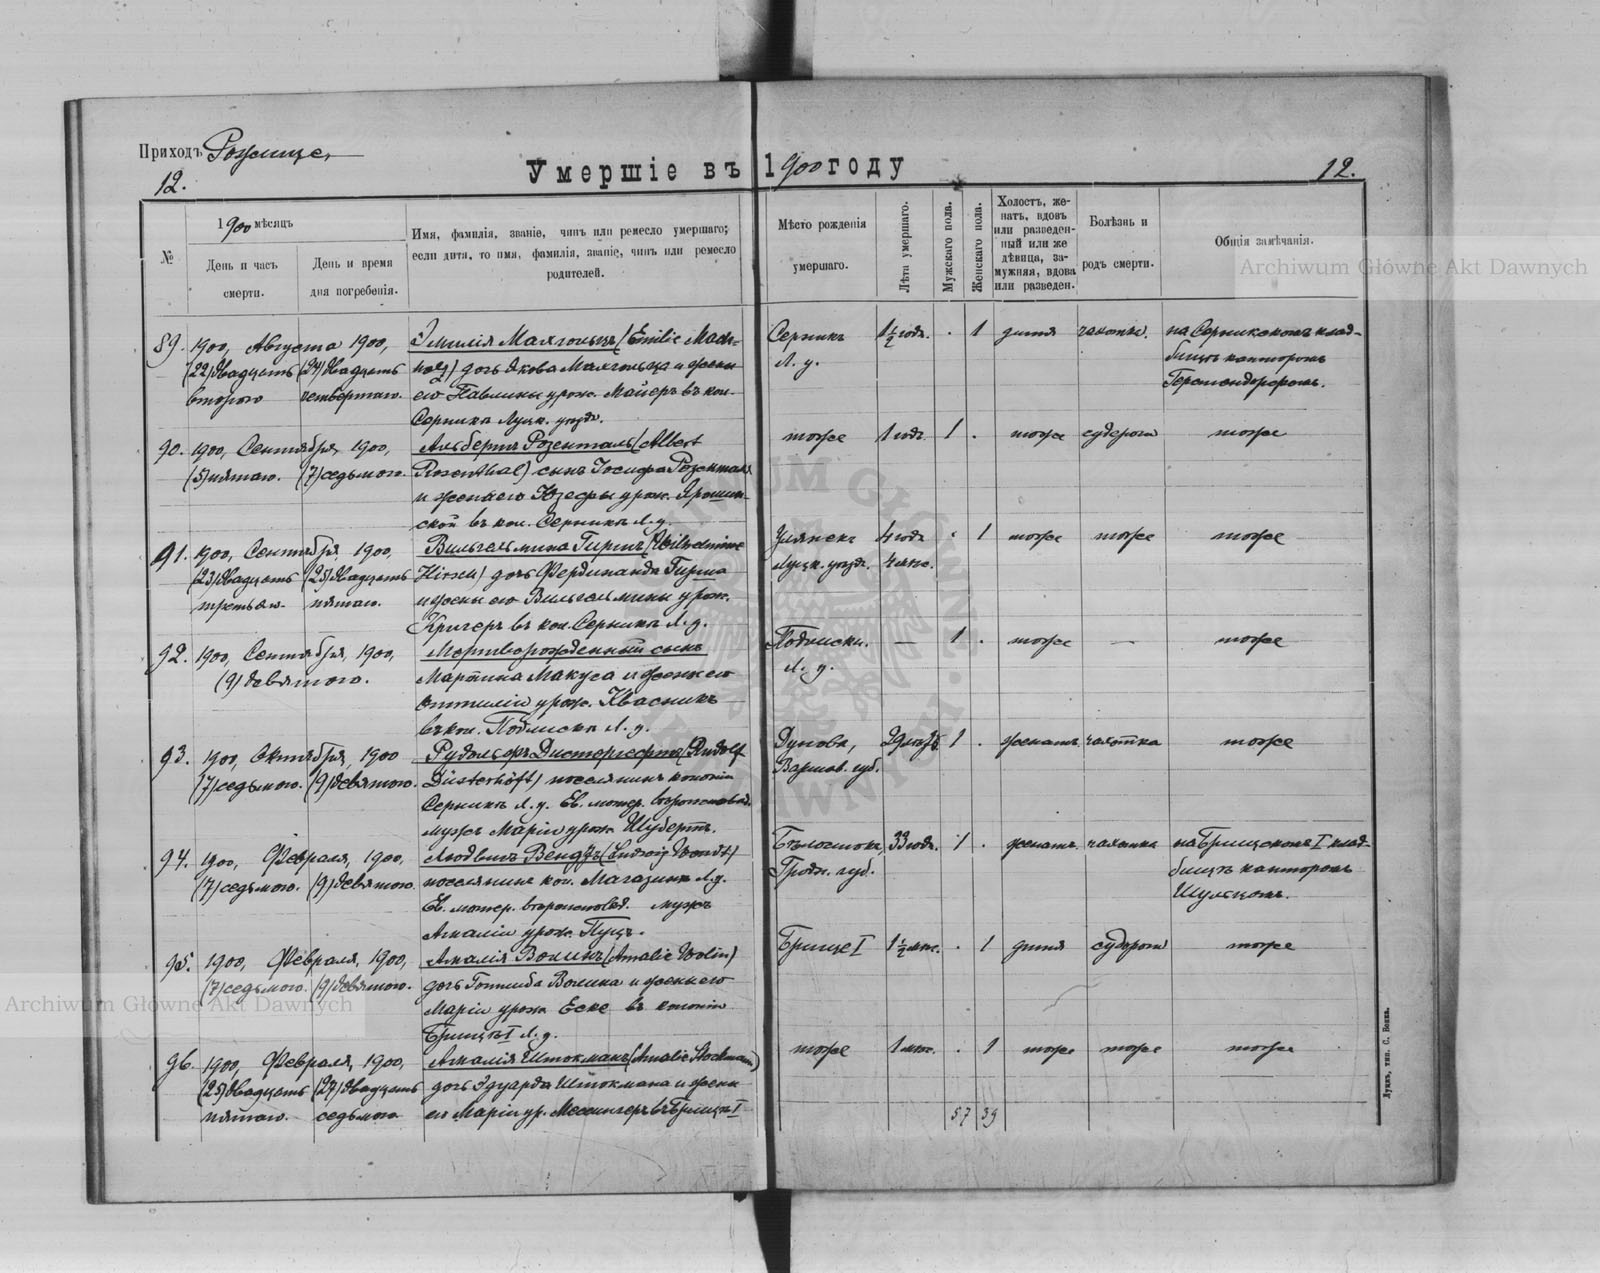 Приходъ Рожище,
12.
Умершіе въ 1900 году
12.
№
1900 мѣсяцъ
День и часъ смерти.
День и время дня погребенія.
Имя, фамилія, званіе, чинъ или ремесло умершаго;
если дитя, то имя, фамилія, званіе, чинъ или ремесло
родителей.
Мѣсто рожденія
умершаго.
Лѣта умершаго.
Мужскаго пола.
Женскаго пола.
Холостъ, же-
натъ, вдовъ
или разведен-
ный или же
дѣвица, за-
мужняя, вдова
или разведен.
Болѣзнь и
родъ смерти.
Общія замѣчанія.
Archiwum Główne Akt Dawnych
89. 1900, Августа 1900, Эмилія (Emilie Mach- Серникъ 1½ годъ . 1 дитя чахотка на Серникскомъ клад-
(22) двадцать (24) двадцать дочь Якова и жены Л. у. бищѣ канторомъ
второго четвертаго. его Павлины урож. Майеръ въ кол.
Серникъ Луцк. уѣзда.
90. 1900, Сентября, 1900, Альбертъ Розенталь (Albert тоже 1 годъ 1 . тоже судороги тоже
(5) пятаго. (7) седьмого. Rosenthal) сынъ Іосифа Розенталя
и жены его Юзефы урож. Ярошин-
ской въ кол. Серникъ Л. у.
91. 1900, Сентября 1900, Вильгельмина Гиршъ (Wilhelmine 4 года . 1 тоже тоже тоже
(23) двадцать (25) двадцать Hirsch) дочь Фердинанда Гирша Луцк. уѣзд. 4 мѣс.
третьяго. пятаго. и жены его Вильгельмины урож.
Кригеръ въ кол. Серникъ Л. у.
92. 1900, Сентября, 1900, Мертворожденный сынъ — 1 . тоже — тоже
(9) девятого. Мартина Макуса и жены его Л. у.
Оттиліи урож. Квасникъ
въ кол. Л. у.
93. 1900, Октября, 1900 Рудольфъ Дистергефтъ (Rudolf 1 . женатъ чахотка тоже
(7) седьмого. (9) девятого. Düsterhöft) поселянинъ колоніи Варшав. губ.
Серникъ Л. у. Ев. лютер. вѣроисповѣд.
мужъ Маріи урож. Шубертъ.
94. 1900, Февраля, 1900, Людвигъ Вендтъ (Ludwig Wendt) Бѣлостокъ, 33 года. 1 . женатъ чахотка на Брищскомъ I клад-
(7) седьмого. (9) девятого. поселянинъ кол. Магазинъ Л. у. Гродн. губ. бищѣ канторомъ
Ев. лютер. вѣроисповѣд. мужъ Шульцомъ.
Амаліи урож. Пуцъ.
95. 1900, Февраля, 1900, Амалія Волинъ (Amalie Wolin) Брище I 1½ мѣс. . 1 дитя судороги тоже
(7) седьмого. (9) девятого. дочь Готлиба Волина и жены его
Маріи урож. Еске въ колоніи
Брище I Л. у.
96. 1900, Февраля, 1900, Амалія Штокманъ (Amalie Stockmann) тоже 1 мѣс. . 1 тоже тоже тоже
(25) двадцать (27) двадцать дочь Эдуарда Штокмана и жены
пятаго. седьмого. его Маріи ур. Мессингеръ въ Брище I
57 39
Archiwum Główne Akt Dawnych
Луцкъ, тип. С. Бокка.